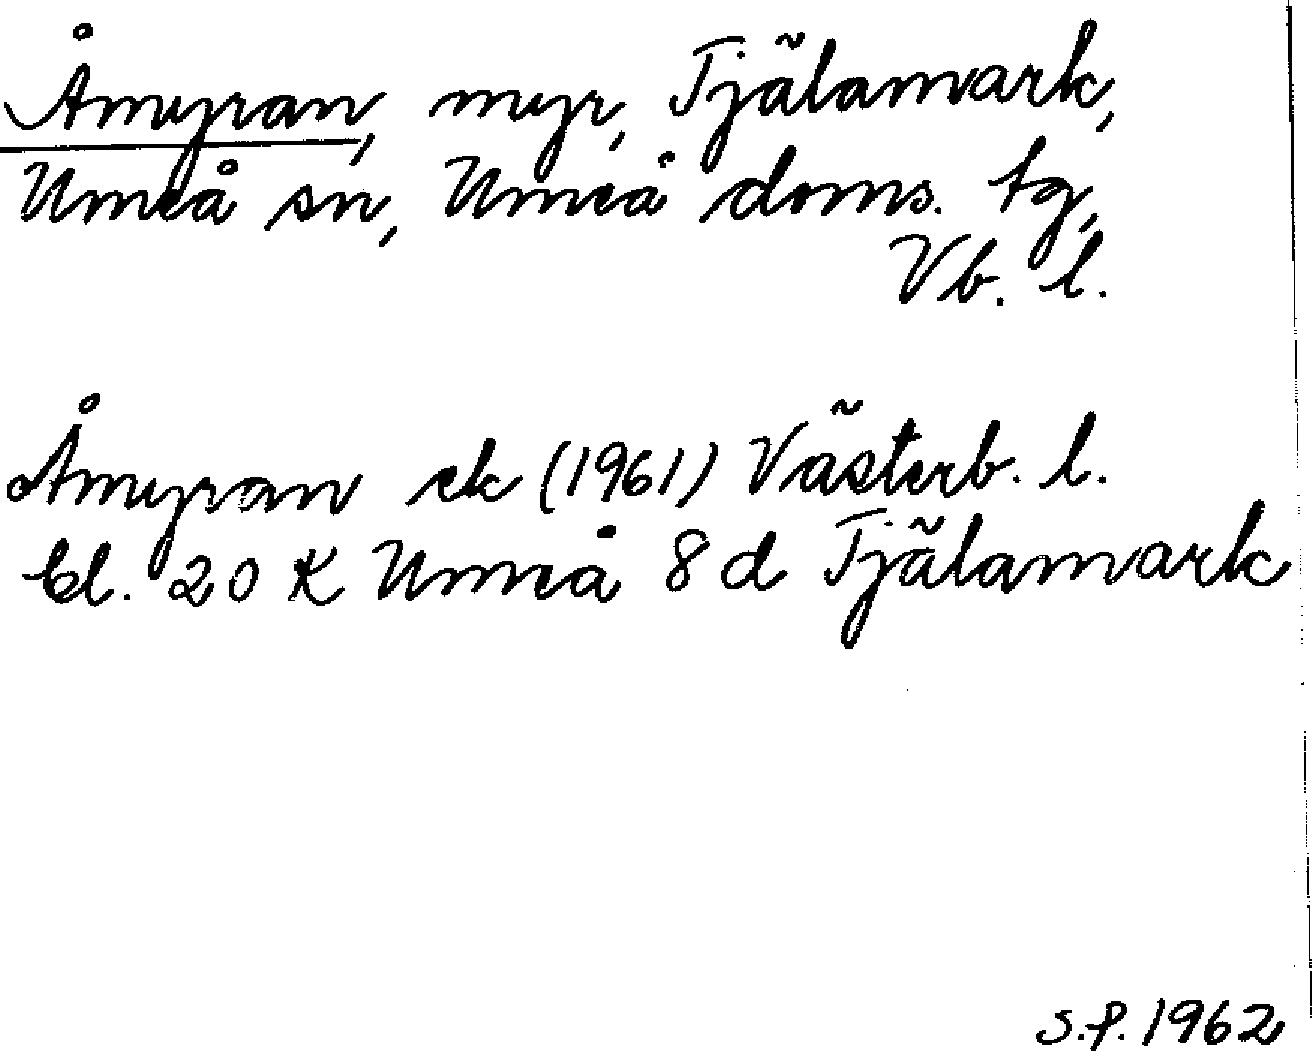 Åmyran, myr, Tjälamark,
Umeå sn, Umeå doms. tg,
Vb. l.
Åmyran ek (1961) Västerb. l.
bl. 20 K Umeå 8 d Tjälamark
S.P. 1962